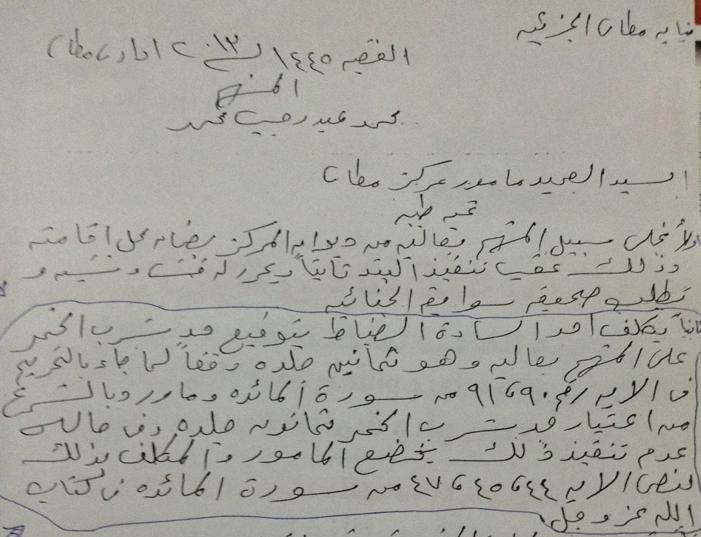 نيابه مطاى الجزئيه
القضيه ١٤٤٥ لسنه ٢٠١٣ ادارى مطاى
المتهم
محمد عيد رجب محمد
السيد العميد مامور مركز مطاى
تحيه طيبه
اولاً يخلى سبيل المتهم بعاليه من ديوان المركز بضمان محل اقامته
وذلك عقب تنفيذ البند ثانياً ويحرر له فيش وتشبيه و
تطلب صحيفة سوابقه الجنائيه
ثانياً يكلف احد السادة الضباط بتوقيع حد شرب الخمر
على المتهم بعاليه وهو ثمانين جلده وفقاً لما جاء بالتحريم
فى الايه رقم ٩٠ ، ٩١ من سورة المائده وما ورد بالشرع
من اعتبار حد شرب الخمر ثمانون جلده وفى حاله
عدم تنفيذ ذلك يخضع المامور والمكلف بذلك
لنص الايه ٤٤ ، ٤٥ ، ٤٧ من سورة المائده فى كتاب
الله عز وجل